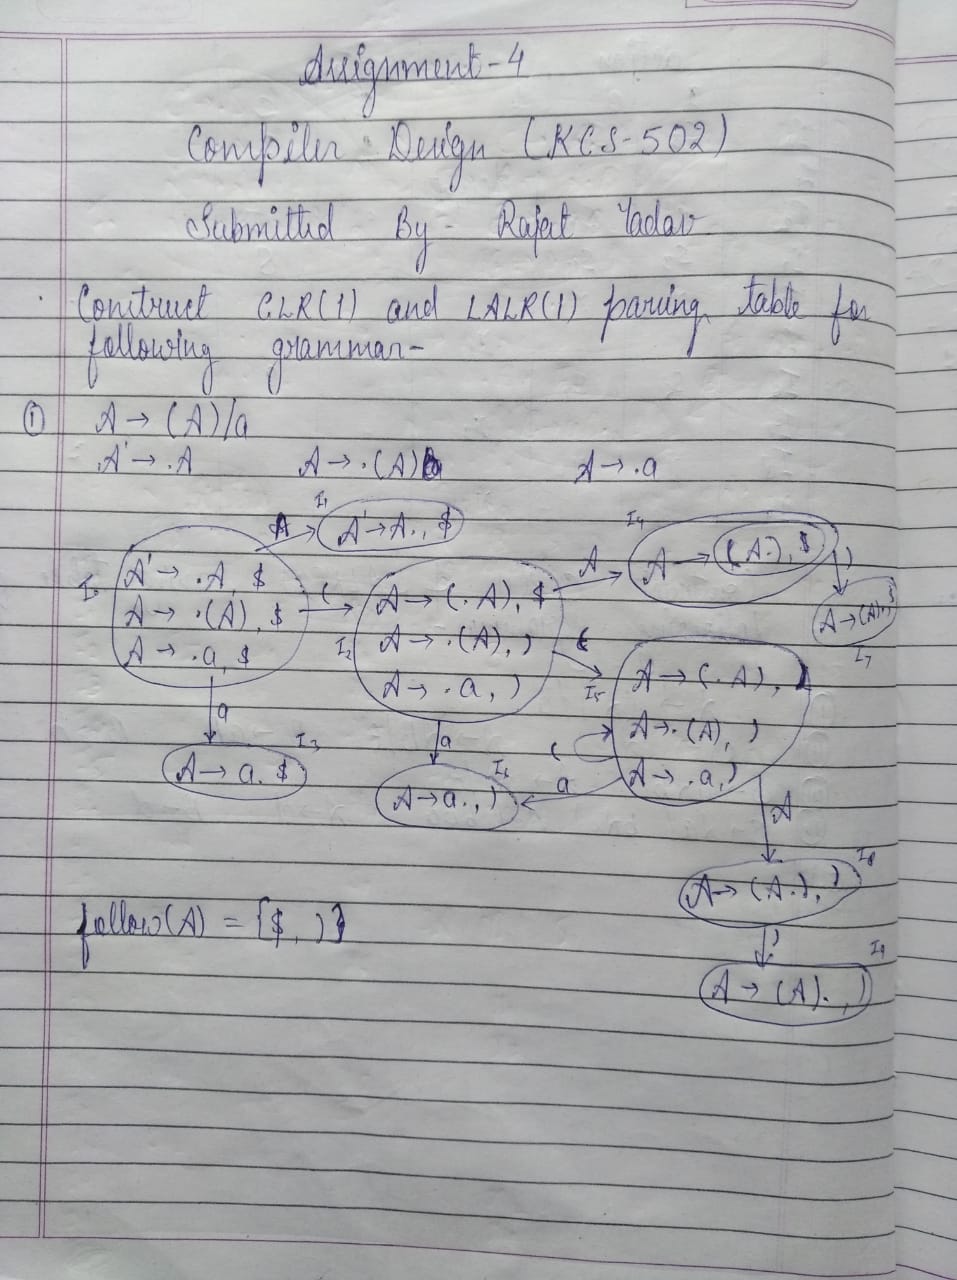 Assignment-4
Compiler Design (KCS-502)
Submitted By - Rajat Yadav
Construct CLR(1) and LALR(1) parsing table for
following grammar-
① A → (A)/a
A' → .A A → .(A) A → .a
I₀
A' → .A, $
A → .(A), $
A → .a, $
A
I₁
A' → A., $
(
I₂
A → (.A), $
A → .(A), )
A → .a, )
A
I₄
A → (A.), $
)
A → (A)., $
I₇
(
I₅
A → (.A), )
A → .(A), )
A → .a, )
(
a
a
I₃
A → a. $
a
I₆
A → a., )
A
I₈
A → (A.), )
)
I₉
A → (A)., )
follow(A) = {$, )}